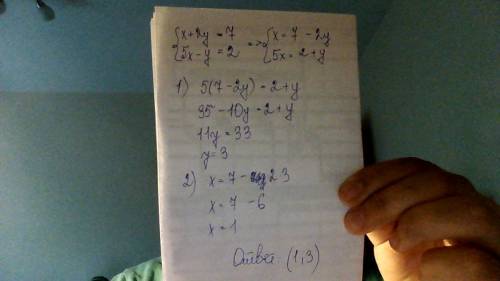 {x+2y=7 => {x=7-2y
{5x-y=2 {5x=2+y
1) 5(7-2y)=2+y
35-10y=2+y
11y=33
y=3
2) x=7-2·3
x=7-6
x=1
Ответ: (1,3)